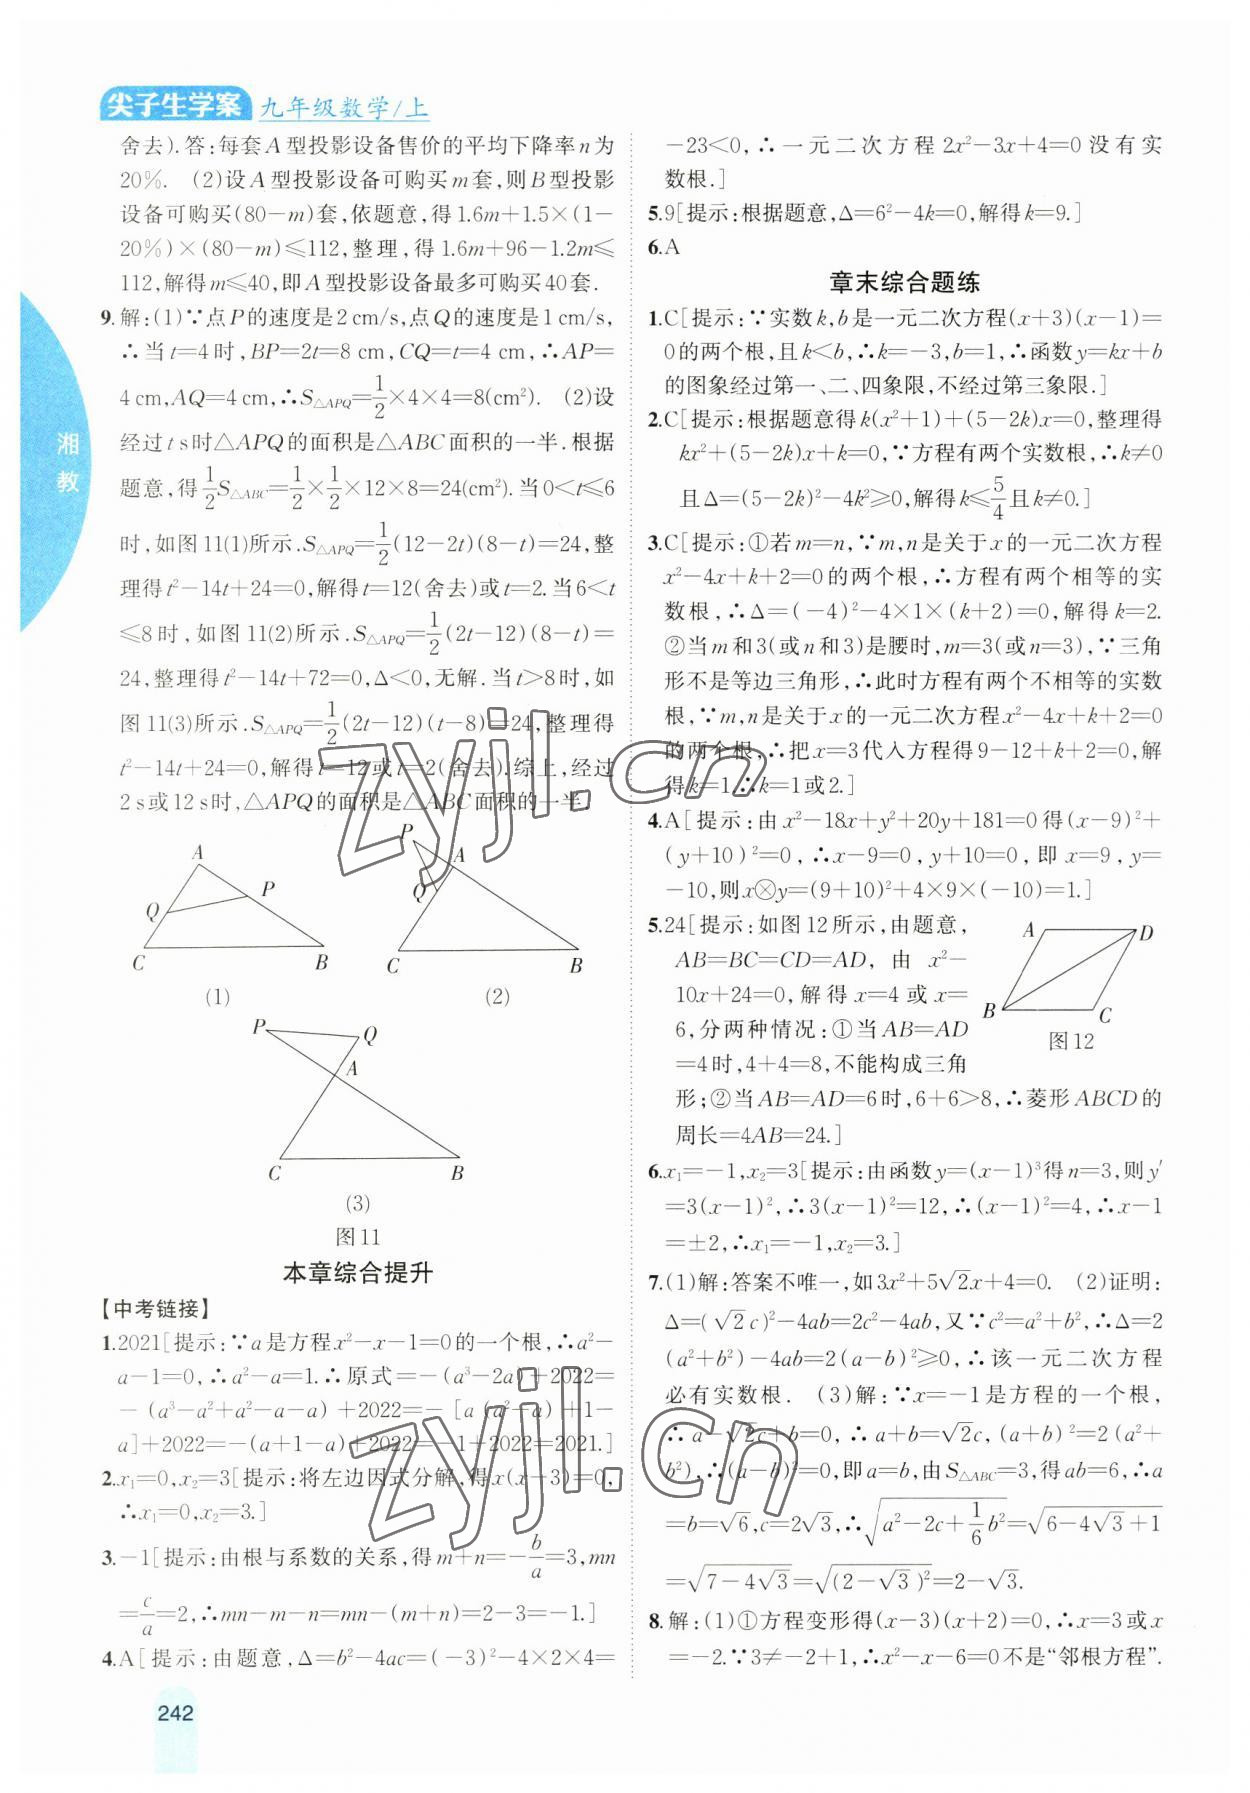 尖子生学案 九年级数学/上
舍去).答:每套A型投影设备售价的平均下降率n为
20%. (2)设A型投影设备可购买m套,则B型投影
设备可购买(80-m)套,依题意,得1.6m+1.5×(1-
20%)×(80-m)≤112,整理,得1.6m+96-1.2m≤
112,解得m≤40,即A型投影设备最多可购买40套.
9.解:(1)∵点P的速度是2 cm/s,点Q的速度是1 cm/s,
∴当t=4时,BP=2t=8 cm,CQ=t=4 cm,∴AP=
4 cm,AQ=4 cm,∴S△APQ=1/2×4×4=8(cm²). (2)设
经过t s时△APQ的面积是△ABC面积的一半.根据
题意,得1/2S△ABC=1/2×1/2×12×8=24(cm²).当0<t≤6
时,如图11(1)所示.S△APQ=1/2(12-2t)(8-t)=24,整
理得t²-14t+24=0,解得t=12(舍去)或t=2.当6<t
≤8时,如图11(2)所示.S△APQ=1/2(2t-12)(8-t)=
24,整理得t²-14t+72=0,Δ<0,无解.当t>8时,如
图11(3)所示.S△APQ=1/2(2t-12)(t-8)=24,整理得
t²-14t+24=0,解得t=12或t=2(舍去).综上,经过
2 s或12 s时,△APQ的面积是△ABC面积的一半.
A P Q C B
(1)
P A Q C B
(2)
P Q A C B
(3)
图11
本章综合提升
【中考链接】
1.2021[提示:∵a是方程x²-x-1=0的一个根,∴a²-
a-1=0,∴a²-a=1.∴原式=-(a³-2a)+2022=
-(a³-a²+a²-a-a)+2022=-[a(a²-a)+1-
a]+2022=-(a+1-a)+2022=-1+2022=2021.]
2.x₁=0,x₂=3[提示:将左边因式分解,得x(x-3)=0,
∴x₁=0,x₂=3.]
3.-1[提示:由根与系数的关系,得m+n=-b/a=3,mn
=c/a=2,∴mn-m-n=mn-(m+n)=2-3=-1.]
4.A[提示:由题意,Δ=b²-4ac=(-3)²-4×2×4=
-23<0,∴一元二次方程2x²-3x+4=0没有实
数根.]
5.9[提示:根据题意,Δ=6²-4k=0,解得k=9.]
6.A
章末综合题练
1.C[提示:∵实数k,b是一元二次方程(x+3)(x-1)=
0的两个根,且k<b,∴k=-3,b=1,∴函数y=kx+b
的图象经过第一、二、四象限,不经过第三象限.]
2.C[提示:根据题意得k(x²+1)+(5-2k)x=0,整理得
kx²+(5-2k)x+k=0,∵方程有两个实数根,∴k≠0
且Δ=(5-2k)²-4k²≥0,解得k≤5/4且k≠0.]
3.C[提示:①若m=n,∵m,n是关于x的一元二次方程
x²-4x+k+2=0的两个根,∴方程有两个相等的实
数根,∴Δ=(-4)²-4×1×(k+2)=0,解得k=2.
②当m和3(或n和3)是腰时,m=3(或n=3),∵三角
形不是等边三角形,∴此时方程有两个不相等的实数
根,∵m,n是关于x的一元二次方程x²-4x+k+2=0
的两个根,∴把x=3代入方程得9-12+k+2=0,解
得k=1.∴k=1或2.]
4.A[提示:由x²-18x+y²+20y+181=0得(x-9)²+
(y+10)²=0,∴x-9=0,y+10=0,即x=9,y=
-10,则x⊗y=(9+10)²+4×9×(-10)=1.]
5.24[提示:如图12所示,由题意,
AB=BC=CD=AD,由x²-
10x+24=0,解得x=4或x=
6,分两种情况:①当AB=AD
=4时,4+4=8,不能构成三角
形;②当AB=AD=6时,6+6>8,∴菱形ABCD的
周长=4AB=24.]
A D B C
图12
6.x₁=-1,x₂=3[提示:由函数y=(x-1)³得n=3,则y′
=3(x-1)²,∴3(x-1)²=12,∴(x-1)²=4,∴x-1
=±2,∴x₁=-1,x₂=3.]
7.(1)解:答案不唯一,如3x²+5√2x+4=0. (2)证明:
Δ=(√2c)²-4ab=2c²-4ab,又∵c²=a²+b²,∴Δ=2
(a²+b²)-4ab=2(a-b)²≥0,∴该一元二次方程
必有实数根. (3)解:∵x=-1是方程的一个根,
∴a-√2c+b=0,∴a+b=√2c,(a+b)²=2(a²+
b²),∴(a-b)²=0,即a=b,由S△ABC=3,得ab=6,∴a
=b=√6,c=2√3,∴√(a²-2c+1/6b²)=√(6-4√3+1)
=√(7-4√3)=√((2-√3)²)=2-√3.
8.解:(1)①方程变形得(x-3)(x+2)=0,∴x=3或x
=-2.∵3≠-2+1,∴x²-x-6=0不是“邻根方程”.
湘教
242
zyjl.cn
zyjl.cn